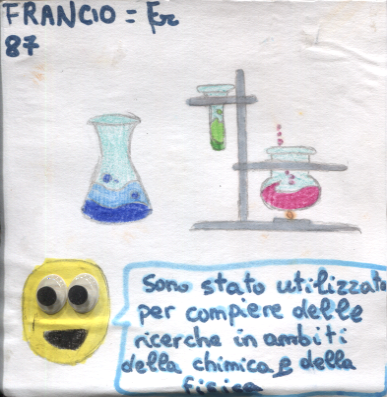 FRANCIO = Fr
87
Sono stato utilizzato
per compiere delle
ricerche in ambiti
della chimica e della
fisica